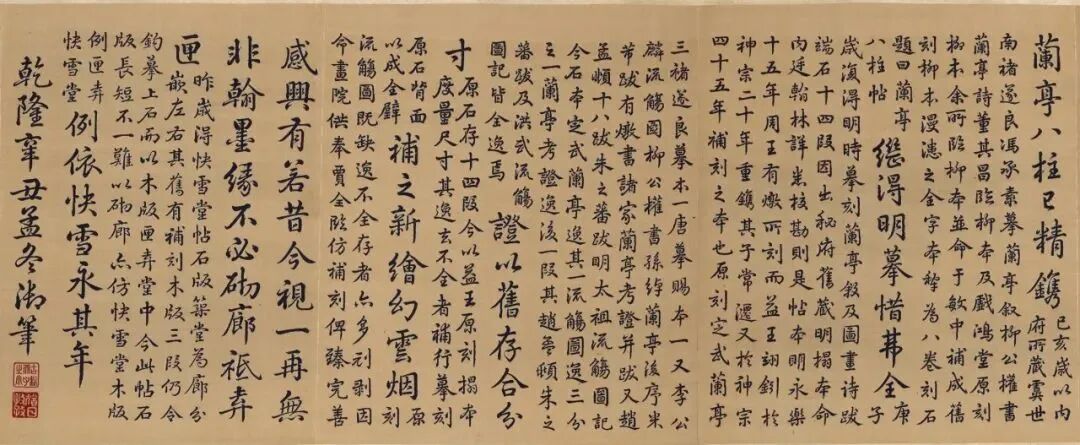 蘭亭八柱已精鐫
己亥歲以内
府所藏虞世
南褚遂良馮承素摹蘭亭叙柳公權書
蘭亭詩董其昌臨柳本及戲鴻堂原刻
柳本余所臨柳本並命于敏中補成舊
刻柳本漫漶之全字本犂為八卷刻石
題曰蘭亭
八柱帖
繼得明摹惜弗全
庚
子
歲復得明時摹刻蘭亭叙及圖畫詩跋
端石十四段因出秘府舊藏明搨本命
内廷翰林詳悉校勘則是帖本明永樂
十五年周王有燉所刻而益王翊鈏於
神宗二十年重鐫其子常又於神宗
四十五年補刻之本也原刻定武蘭亭
三褚遂良摹本一唐摹賜本一又李公
麟流觴圖柳公權書孫綽蘭亭後序米
芾跋有燉書諸家蘭亭考證并跋又趙
孟頫十八跋朱之蕃跋明太祖流觴圖記
今石本定武蘭亭逸其一流觴圖逸三分
之一蘭亭考證逸後一段其趙孟頫朱之
蕃跋及洪武流觴
圖記皆全逸焉
證以舊存合分
寸
原石存十四段今以益王原刻搨本
度量尺寸其逸去不全者補行摹刻
原石背面
以成全壁
補之新繪幻雲烟
原
刻
流觴圖既缺逸不全存者亦多剝因
命畫院供奉賈全臨仿補刻俾臻完善
感興有若昔今視一再無
非翰墨緣不必砌廊祇弆
匣
昨歲得快雪堂帖石版築堂為廊分
嵌左右其舊有補刻木版三段仍令
鈎摹上石而以木版匣弆堂中今此帖石
版長短不一難以砌廊亦仿快雪堂木版
例匣弆
快雪堂
例依快雪永其年
乾隆辛丑孟冬御筆